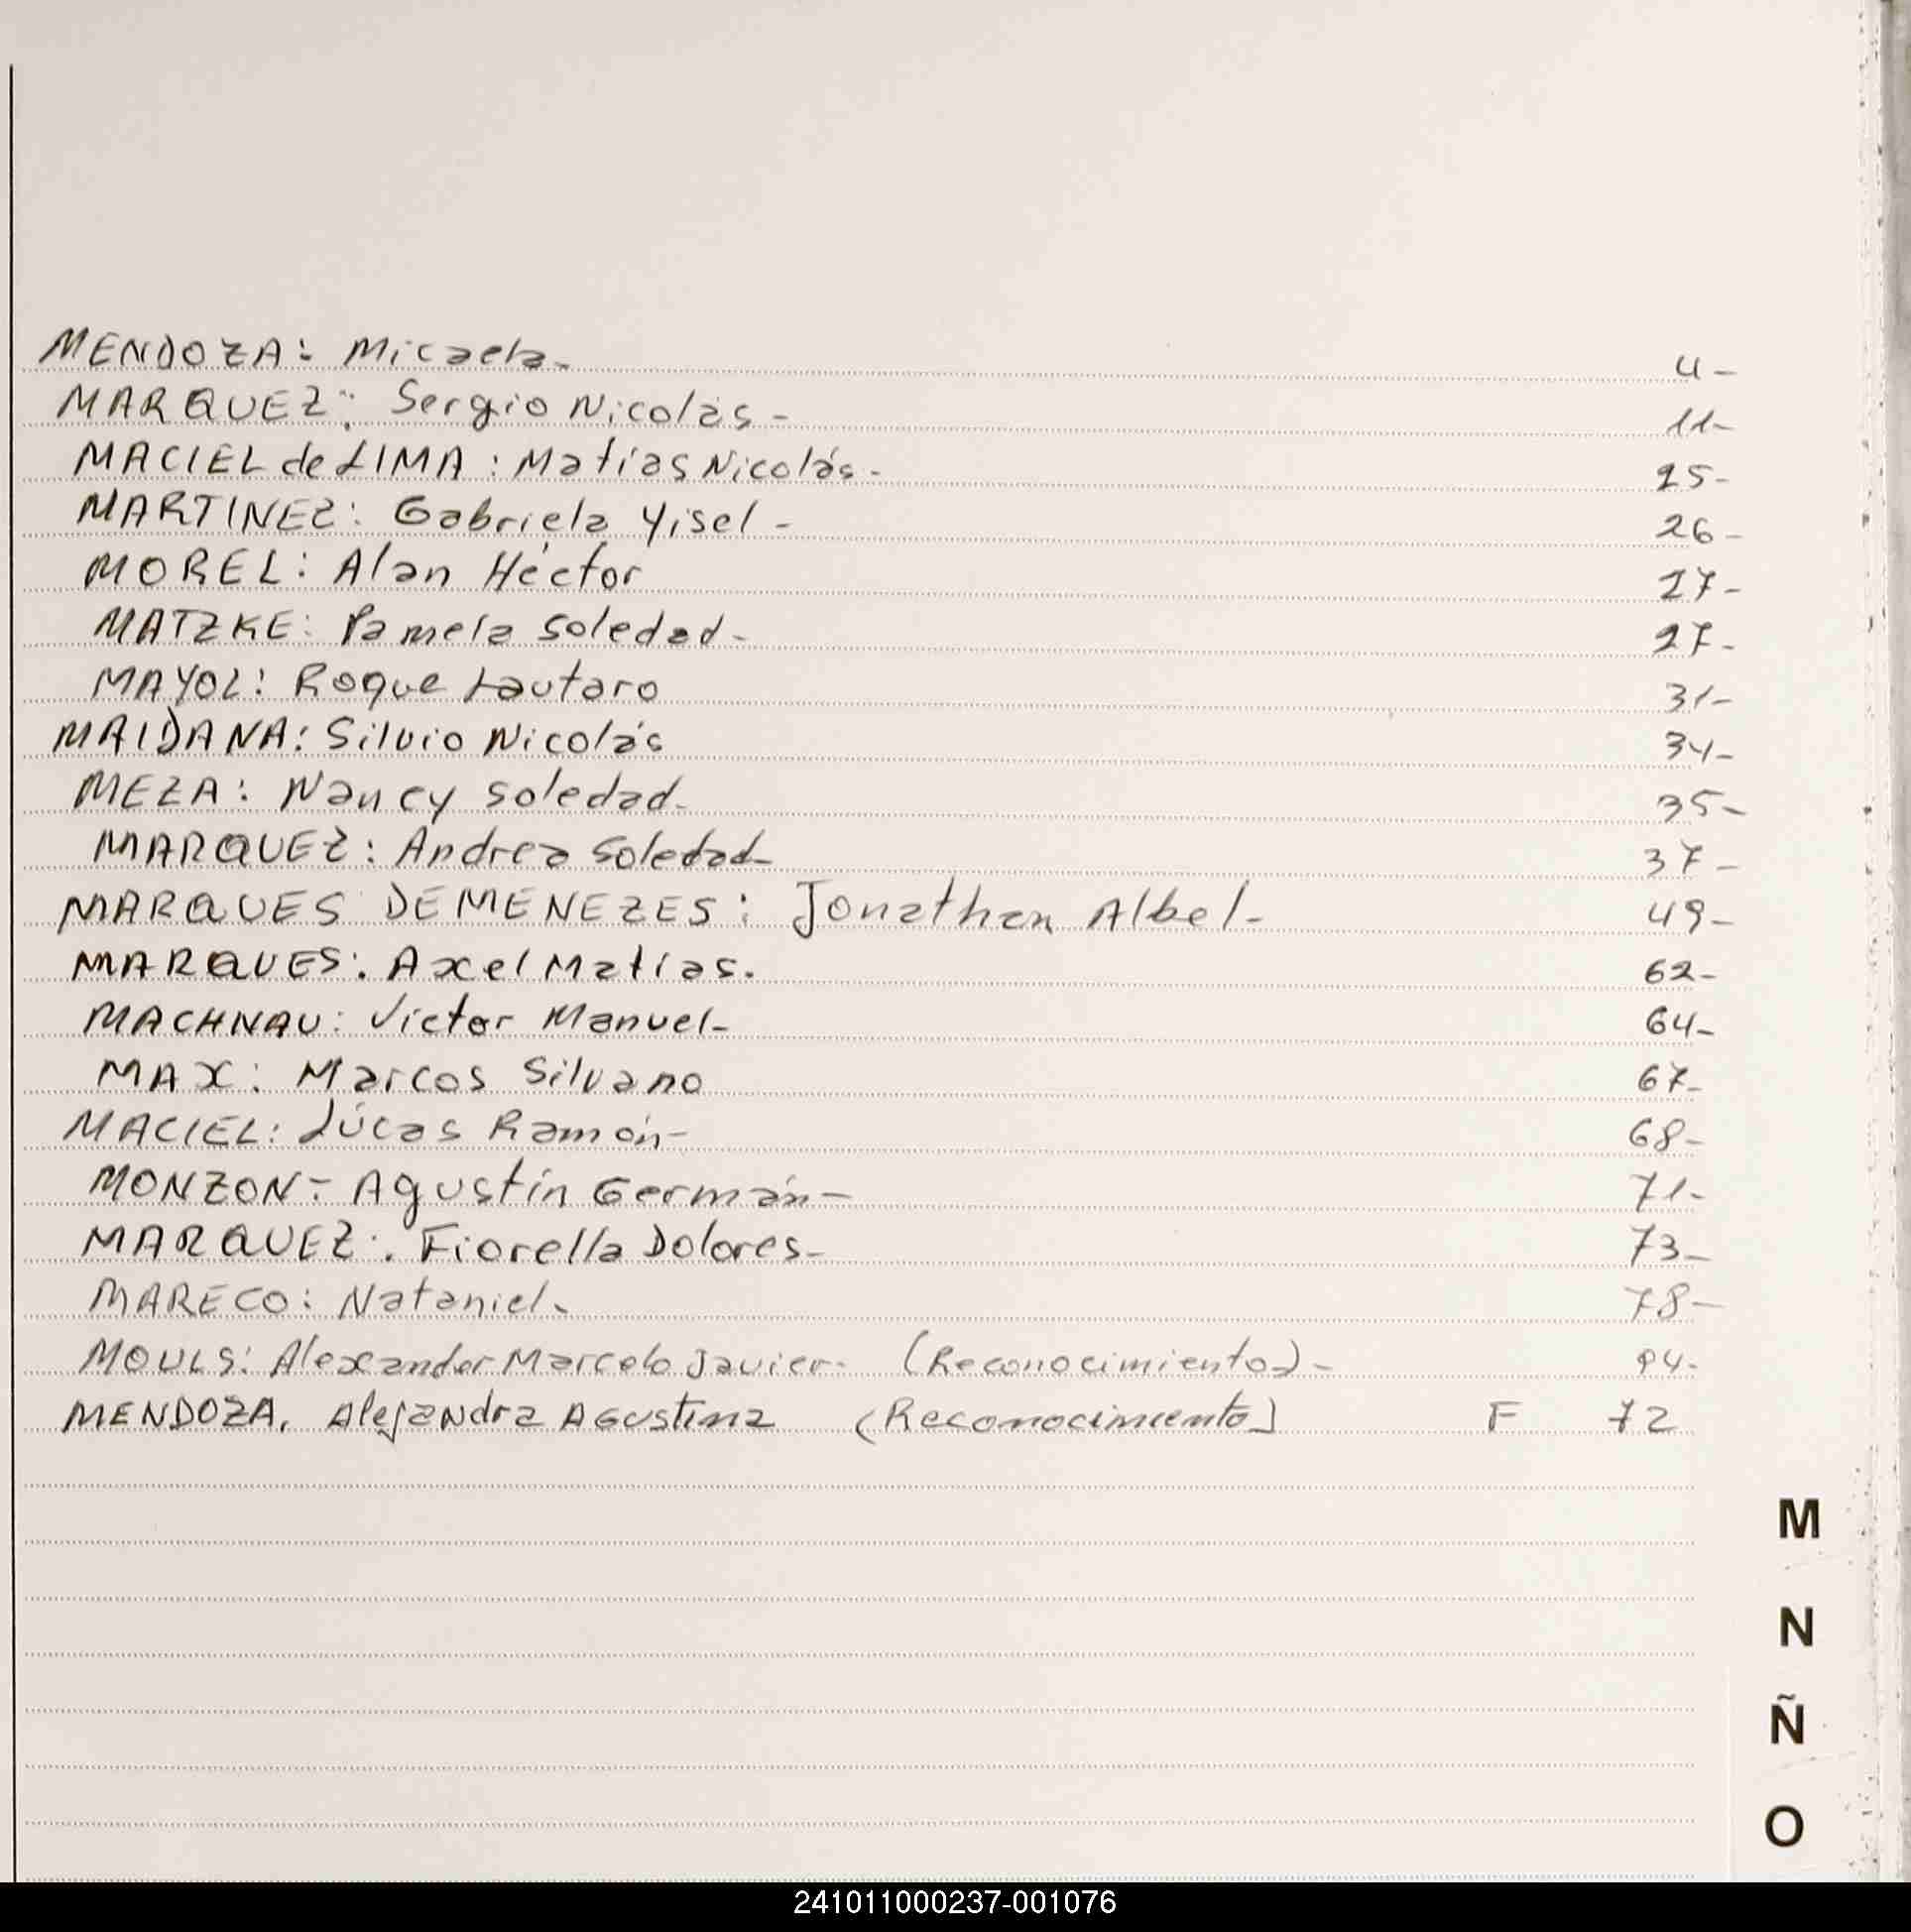 MENDOZA: Micaela- 4-
MARQUEZ: Sergio Nicolás- 11-
MACIEL de LIMA: Matías Nicolás- 25-
MARTINEZ: Gabriela Yisel- 26-
MOREL: Alan Héctor 27-
MATZKE: Pamela Soledad- 27-
MAYOL: Roque Lautaro 31-
MAIDANA: Silvio Nicolás 34-
MEZA: Nancy Soledad- 35-
MARQUEZ: Andrea Soledad- 37-
MARQUES DEMENEZES: Jonathan Albel- 49-
MARQUES: Axel Matías. 62-
MACHNAU: Victor Manuel- 64-
MAX: Marcos Silvano 67-
MACIEL: Lúcas Ramón- 68-
MONZON- Agustín Germán- 71-
MARQUEZ: Fiorella Dolores- 73-
MARECO: Nataniel- 78-
MOULS: Alexander Marcelo Javier- (Reconocimiento)- 94-
MENDOZA, Alejandra Agustina (Reconocimiento) F 72
M
N
Ñ
O
241011000237-001076